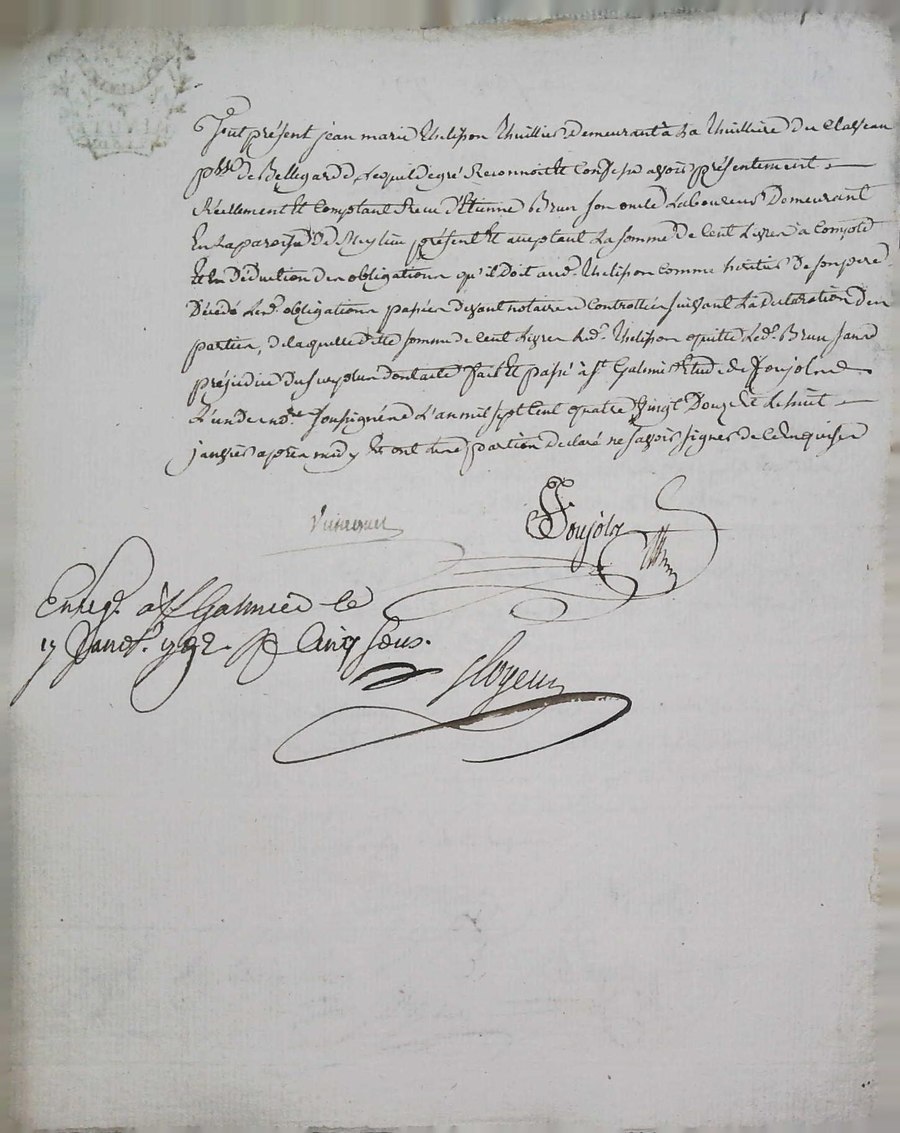 fut présent jean marie Thelisson thuillier demeurant à La thuilliere du Clapeau
psse de Bellegard, Lequel de gré Reconnoit Et Confesse avoir présentement
Réellement Et Comptant Recu d'Etienne Brun son oncle Laboureur demeurant
En La paroisse De Meylieu présent Et acceptant La somme de Cent Livres à Compte
Et En Déduction des obligations qu'il Doit aud. Thelisson comme héritier De son pere
Décédé Lesd. obligations passées devant notaires Controllées suivant La declaration des
parties, de laquelle ditte somme de Cent Livres Led. Thelisson quitte Led. Brun sans
préjudice du surplus dont acte fait Et passé à St Galmier Etude de Ponjolras
L'un des nores soussignés L'an mil sept Cent quatre Vingt Douze Et Le huit
janvier après midy Et ont dites parties declaré ne savoir signer de Ce Enquises
Enreg. à St Galmier le
17 Janvr. 1792. R cinq sous.